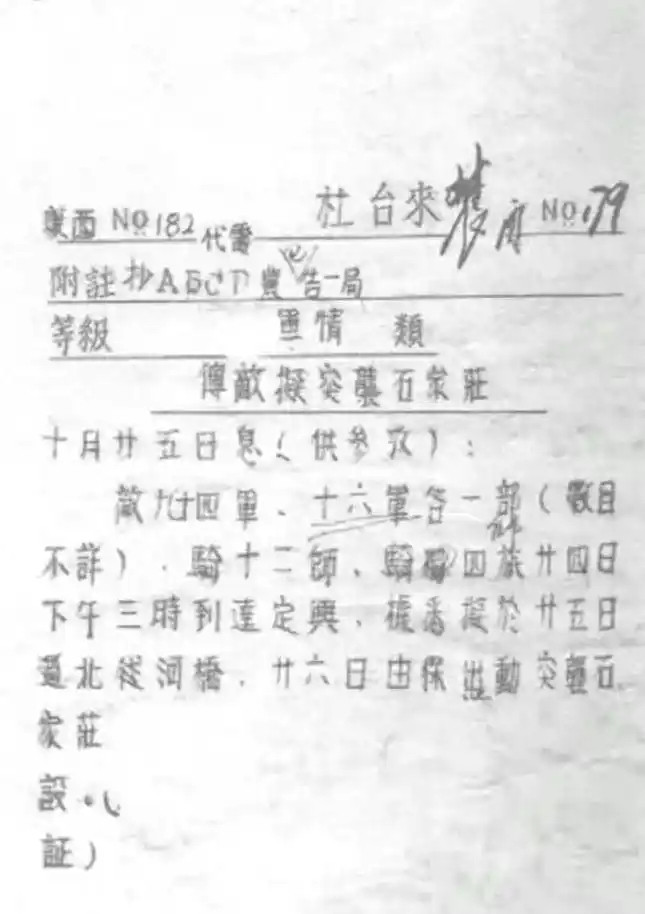 西 NO 182 代電 杜台來 NO 179
附註抄ABCD 告一局
等級 軍情 類
傳敵擬突襲石家莊
十月廿五日息(供參攷):
敵九十四軍、十六軍各一部(數目
不詳)、騎十二師、騎四旅廿四日
下午三時到達定興、據香擬於廿五日
過北從河橋、廿六日由保出動突襲石
家莊
証)